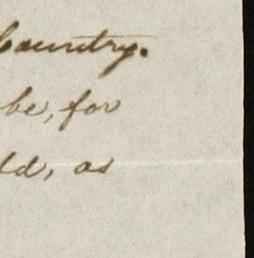 Country.
be, for
ld, as